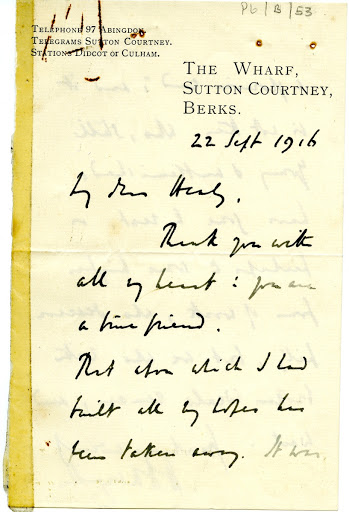 P6/B/53
TELEPHONE 97 ABINGDON.
TELEGRAMS SUTTON COURTNEY.
STATIONS DIDCOT OR CULHAM.
THE WHARF,
SUTTON COURTNEY,
BERKS.
22 Sept 1916
My dear Healy,
Thank you with
all my heart : you are
a true friend.
That upon which I had
built all my hopes has
been taken away. It was